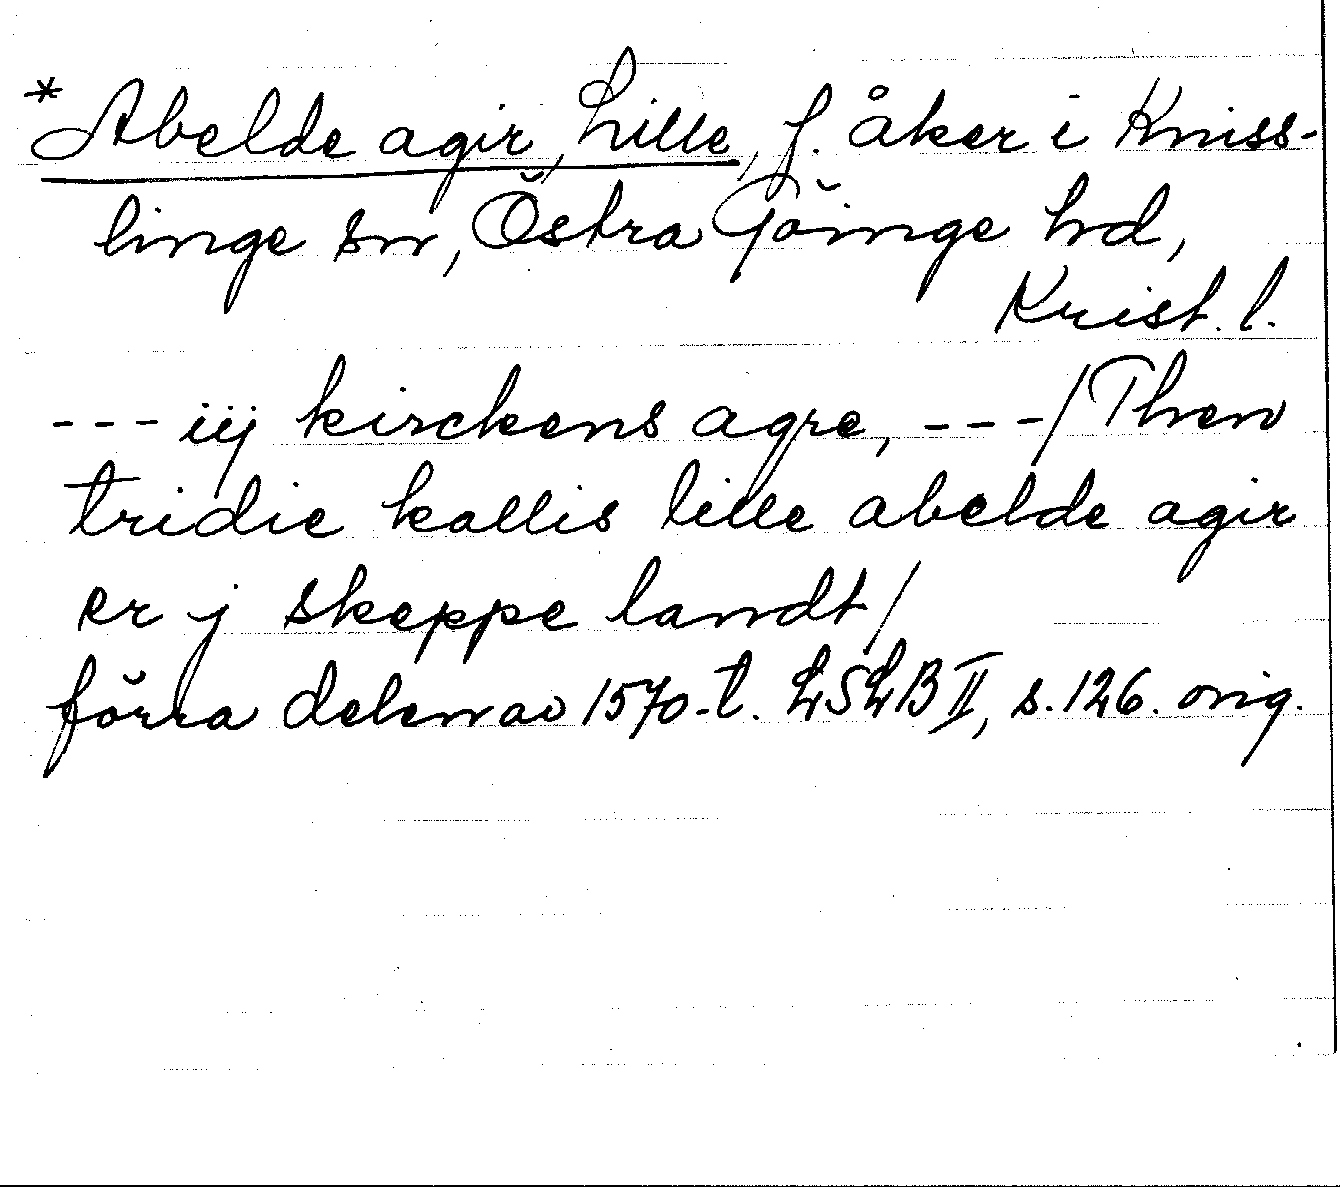 *Abelde agir, Lille, f. åker i Kniss-
linge sn, Östra Göinge hd,
Krist. l.
--- iij kirckens agre, ---/ Then
tridie kallis lille abelde agir
er j skeppe landt/
förra delen av 1570-t. LSLB II, s. 126. orig.